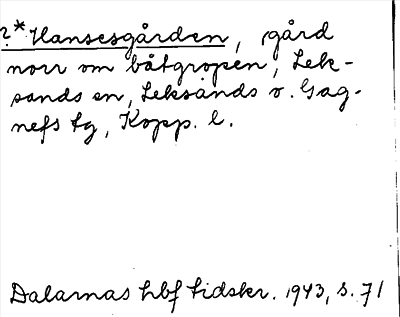 ?*Hansesgården, gård
norr om båtgropen, Lek-
sands sn, Leksands o. Gag-
nefs tg, Kopp. l.
Dalarnas hbf tidskr. 1943, s. 71